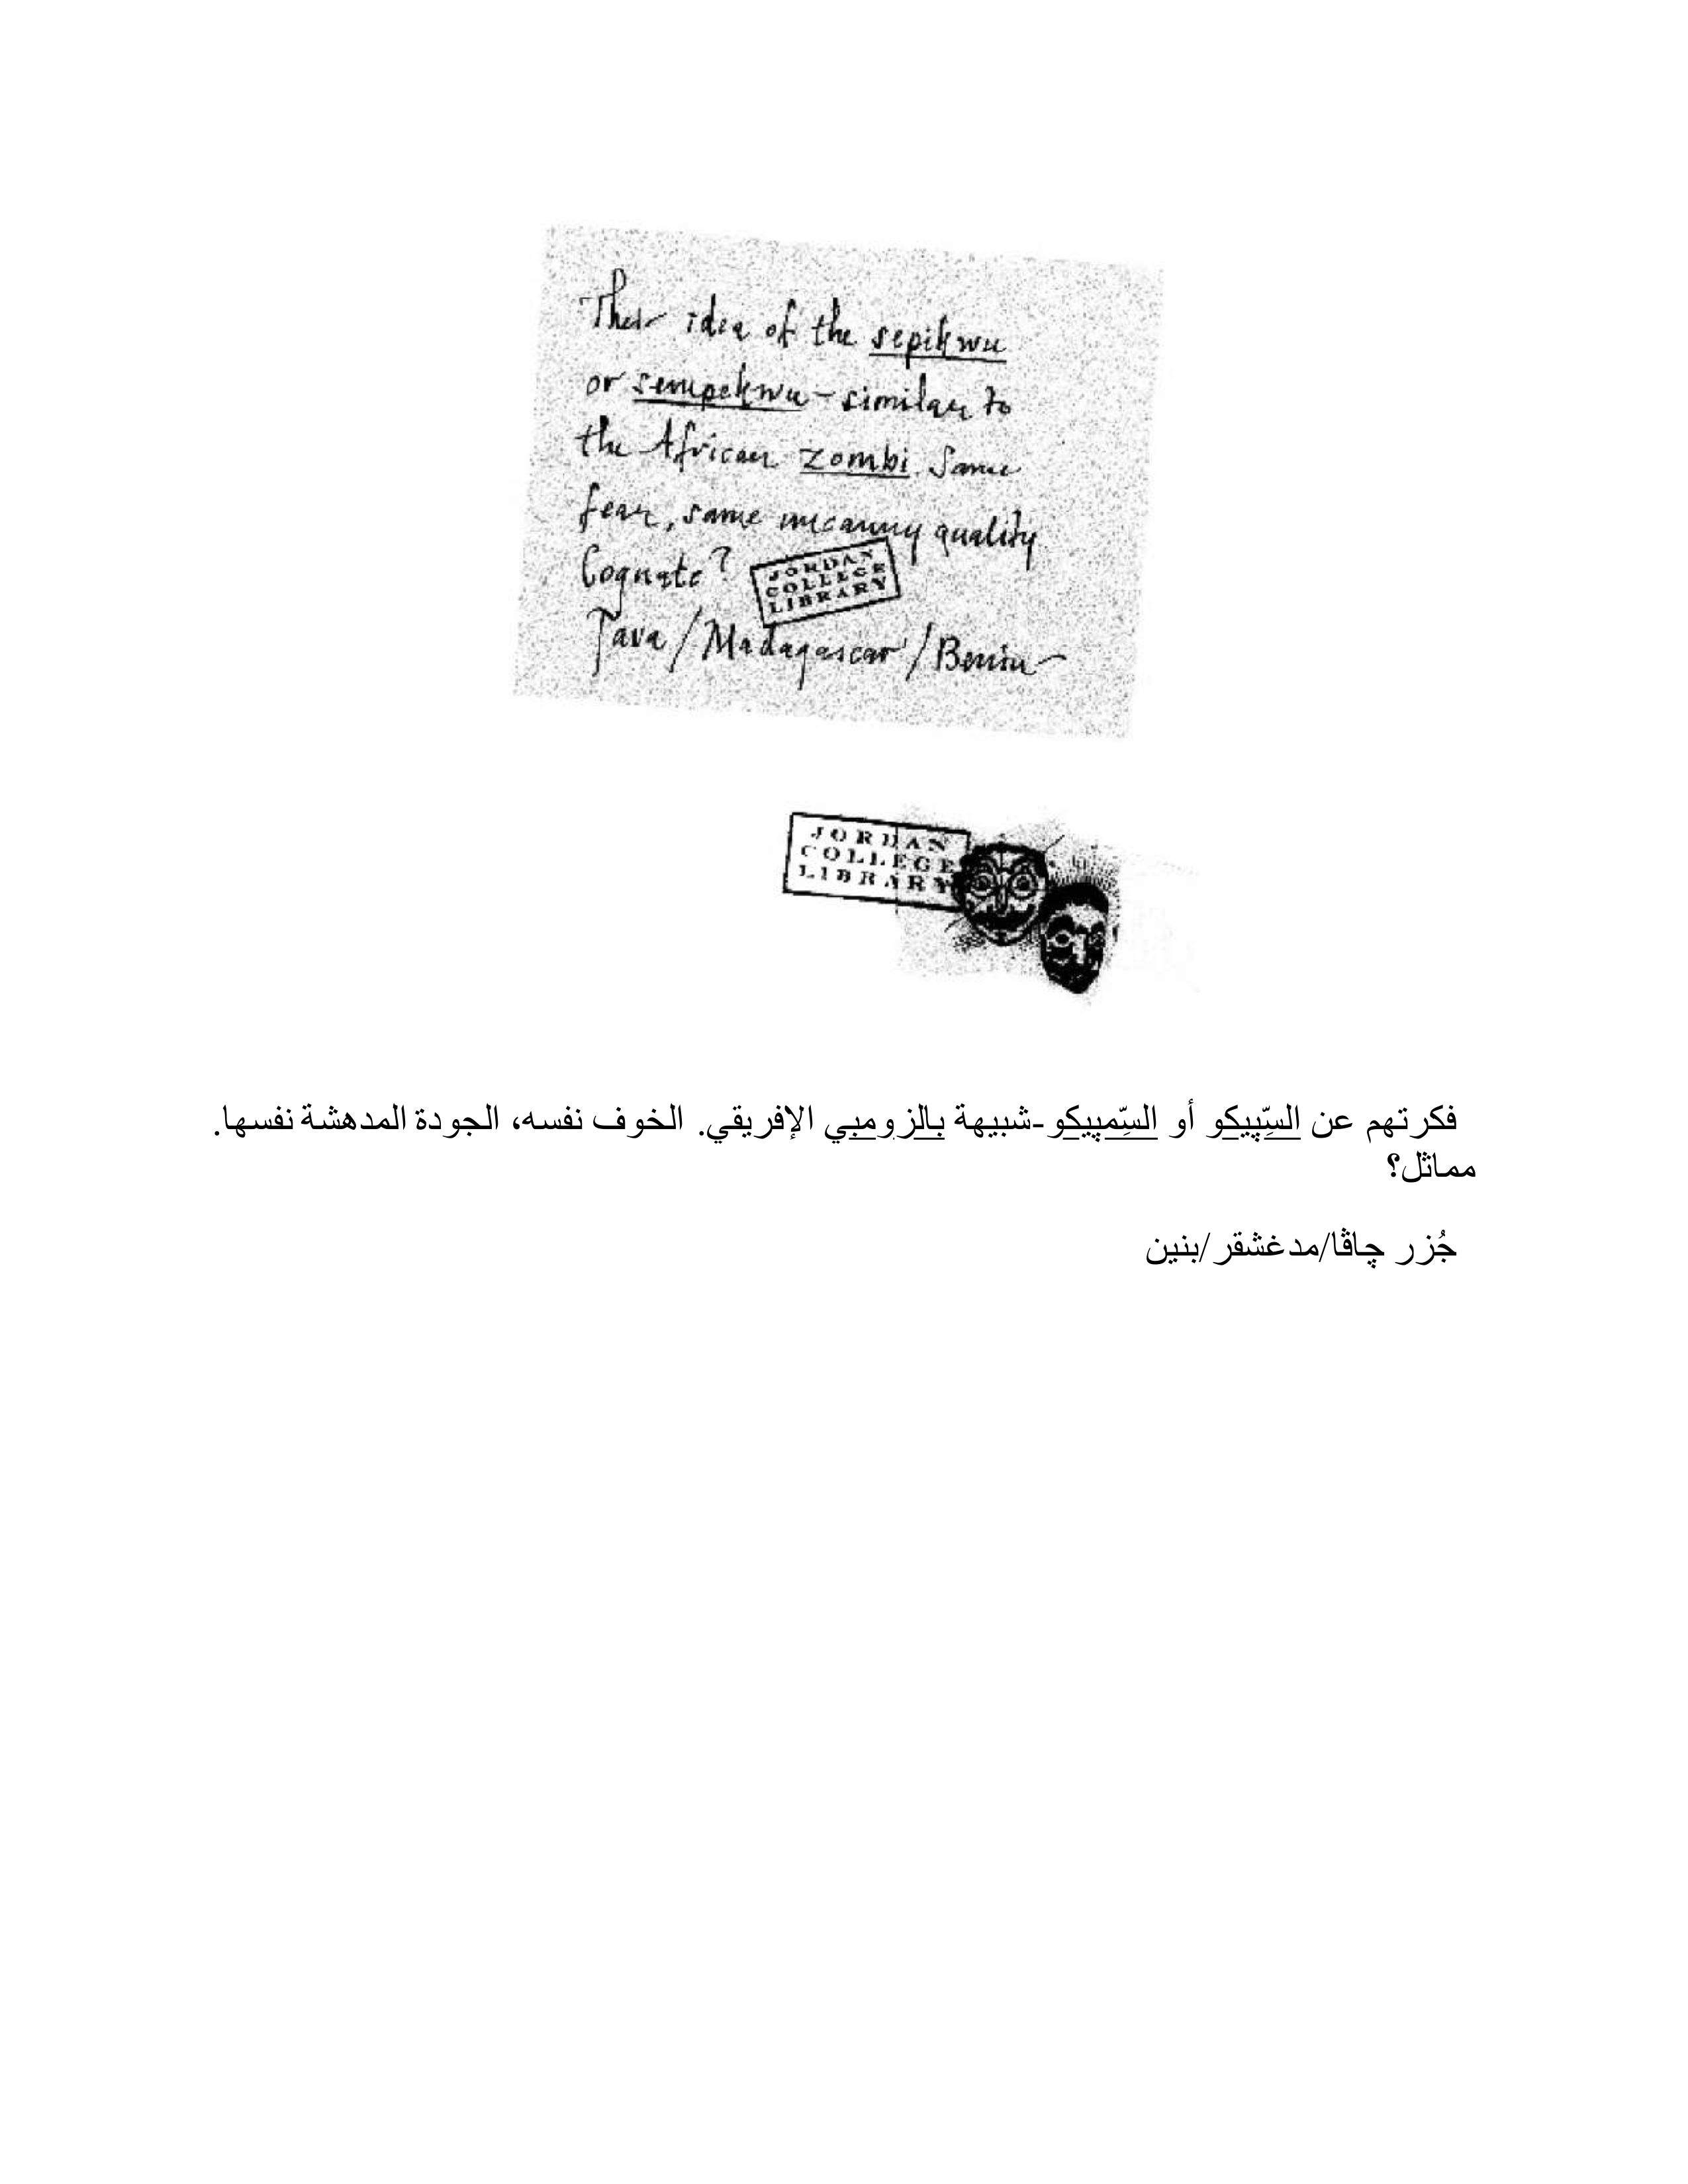 Their idea of the sepikwu
or sempekwu – similar to
the African zombi. Same
fear, same uncanny quality.
Cognate?
JORDAN
COLLEGE
LIBRARY
Java / Madagascar / Benin –
JORDAN
COLLEGE
LIBRARY
فكرتهم عن السِّپيكو أو السِّمپيكو-شبيهة بالزومبي الإفريقي. الخوف نفسه، الجودة المدهشة نفسها.
مماثل؟
جُزر چاڤا/مدغشقر/بنين